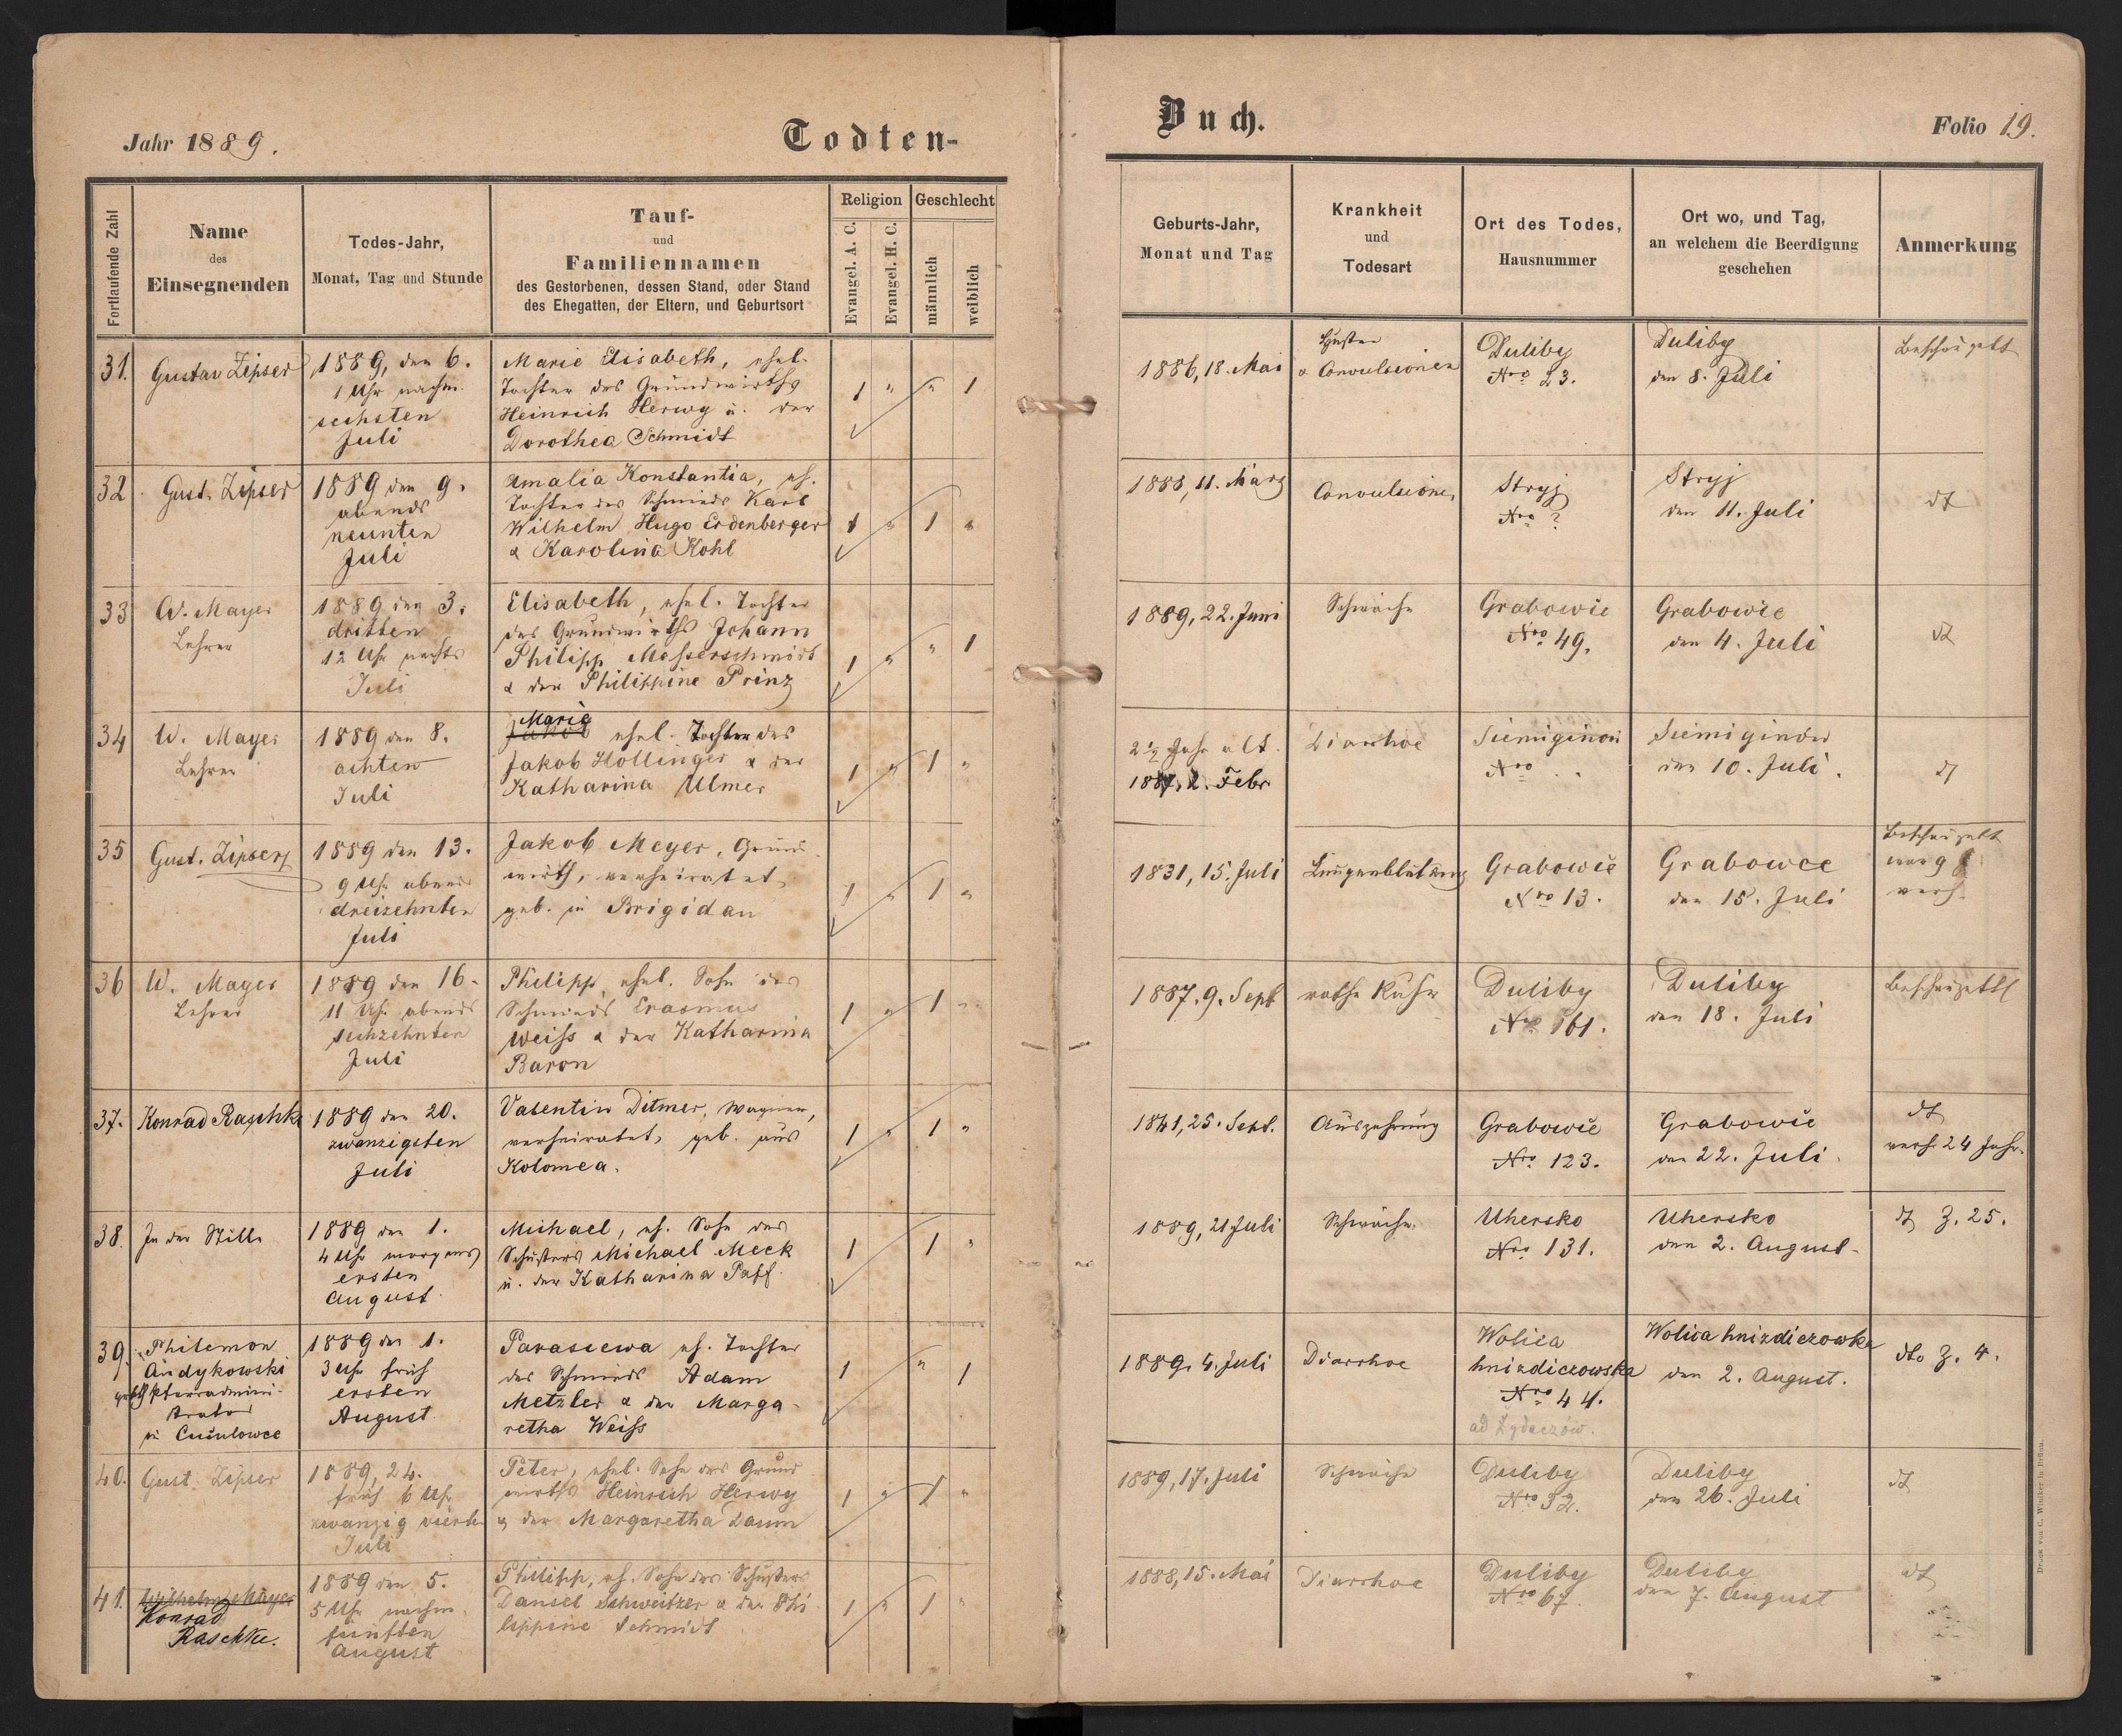 Jahr 1889.
Todten-
Fortlaufende Zahl
Name
des
Einsegnenden
Todes-Jahr,
Monat, Tag und Stunde
Tauf-
und
Familiennamen
des Gestorbenen, dessen Stand, oder Stand
des Ehegatten, der Eltern, und Geburtsort
Religion
Evangel. A. C.
Evangel. H. C.
Geschlecht
männlich
weiblich
31.
Gustav Zipser
1889, den 6.
1 Uhr nachm.
sechsten
Juli
Marie Elisabeth, ehel.
Tochter des Grundwirths
Heinrich Herwy u. der
Dorothea Schmidt
1 " " 1
32
Gust. Zipser
1889 den 9.
abends
neunten
Juli
Amalia Konstantia, eh.
Tochter des Schmieds Karl
Wilhelm Hugo Erdenberger
& Karolina Kohl
1 " 1 "
33
W. Mayer
Lehrer
1889 den 3.
dritten
12 Uhr nachts
Juli
Elisabeth, ehel. Tochter
des Grundwirths Johann
Philipp Messerschmidt
& der Philippine Prinz
1 " " 1
34
W. Mayer
Lehrer
1889 den 8.
achten
Juli
Marie
Jakob ehel. Tochter des
Jakob Hollinger & der
Katharina Ulmer
1 " 1 "
35
Gust. Zipser
1889 den 13.
9 Uhr abends
dreizehnten
Juli
Jakob Meyer, Grund-
wirth, verheiratet,
geb. in Brigidau
1 " 1 "
36
W. Mayer
Lehrer
1889 den 16.
11 Uhr abends
sechzehnten
Juli
Philipp, ehel. Sohn des
Schmieds Erasmus
Weiss & der Katharina
Baron
1 " 1 "
37.
Konrad Raschke
1889 den 20.
zwanzigsten
Juli
Valentin Ditmer, Wagner,
verheiratet, geb. aus
Kolomea.
1 " 1 "
38.
In der Stille
1889 den 1.
4 Uhr morgens
ersten
August
Michael, eh. Sohn des
Schusters Michael Meck
u. der Katharina Paff.
1 1 "
39.
Philemon
Andykowski
Pfarradmini-
strator
in Cucułowce
1889 den 1.
3 Uhr früh
ersten
August
Parascewa eh. Tochter
des Schmieds Adam
Metzler & der Marga-
retha Weiss
1 " 1
40.
Gust. Zipser
1889, 24.
früh 6 Uhr
zwanzig vierten
Juli
Peter, ehel. Sohn des Grund
wirths Heinrich Herwy
& der Margaretha Daum
1 " 1 "
41.
Wilhelm Mayer
Konrad
Raschke.
1889 den 5.
5 Uhr nachm.
fünften
August
Philipp, eh. Sohn des Schusters
Daniel Schweitzer & der Phi
lippine Schmidt
1 " 1 "
Buch.
Folio 19.
Geburts-Jahr,
Monat und Tag
Krankheit
und
Todesart
Ort des Todes,
Hausnummer
Ort wo, und Tag,
an welchem die Beerdigung
geschehen
Anmerkung
1886, 18. Mai
Husten
& Convulsionen
Duliby
Nro 23.
Duliby
den 8. Juli
Beschaugett
1888, 11. März
Convulsionen
Stryj
Nro ?
Stryj
den 11. Juli
dt
1889, 22. Juni
Schwäche
Grabowce
Nro 49.
Grabowce
den 4. Juli
dt
2 1/2 Jahr alt.
1887, 2. Febr
Diarrhoe
Siemiginow
Nro . .
Siemiginow
den 10. Juli.
dt
1831, 15. Juli
Lungenblutung
Grabowce
Nro 13.
Grabowce
den 15. Juli
1887. 9. Sept
rothe Ruhr
Duliby
Nro 161.
Duliby
den 18. Juli
Beschauzettl
1841, 25. Sept.
Auszehrung
Grabowce
Nro 123.
Grabowce
den 22. Juli.
dt
verh. 24 Jahr.
1889, 21 Juli
Schwäche.
Uhersko
Nro 131.
Uhersko
den 2. August.
dt Z. 25.
1889. 4. Juli
Diarrhoe
Wolica
hnizdiczowska
Nro 44.
ad Żydaczów.
Wolica hnizdiczowska
den 2. August.
dto Z. 4.
1889, 17. Juli
Schwäche
Duliby
Nro 32.
Duliby
den 26. Juli
dt
1888, 15. Mai
Diarrhoe
Duliby
Nro 67.
Duliby
den 7. August
dt
Druck von C. Winiker in Brünn.